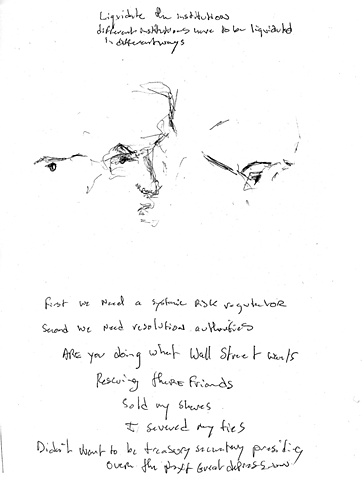 Liquidate the institutions
different institutions have to be liquidated
in different ways
First we need a systemic Risk regulator
Second we need resolution authorities
Are you doing what Wall Street wants
Rescuing there Friends
Sold my shares
I severed my ties
Didn't want to be treasury secretary presiding
over the next Great depression